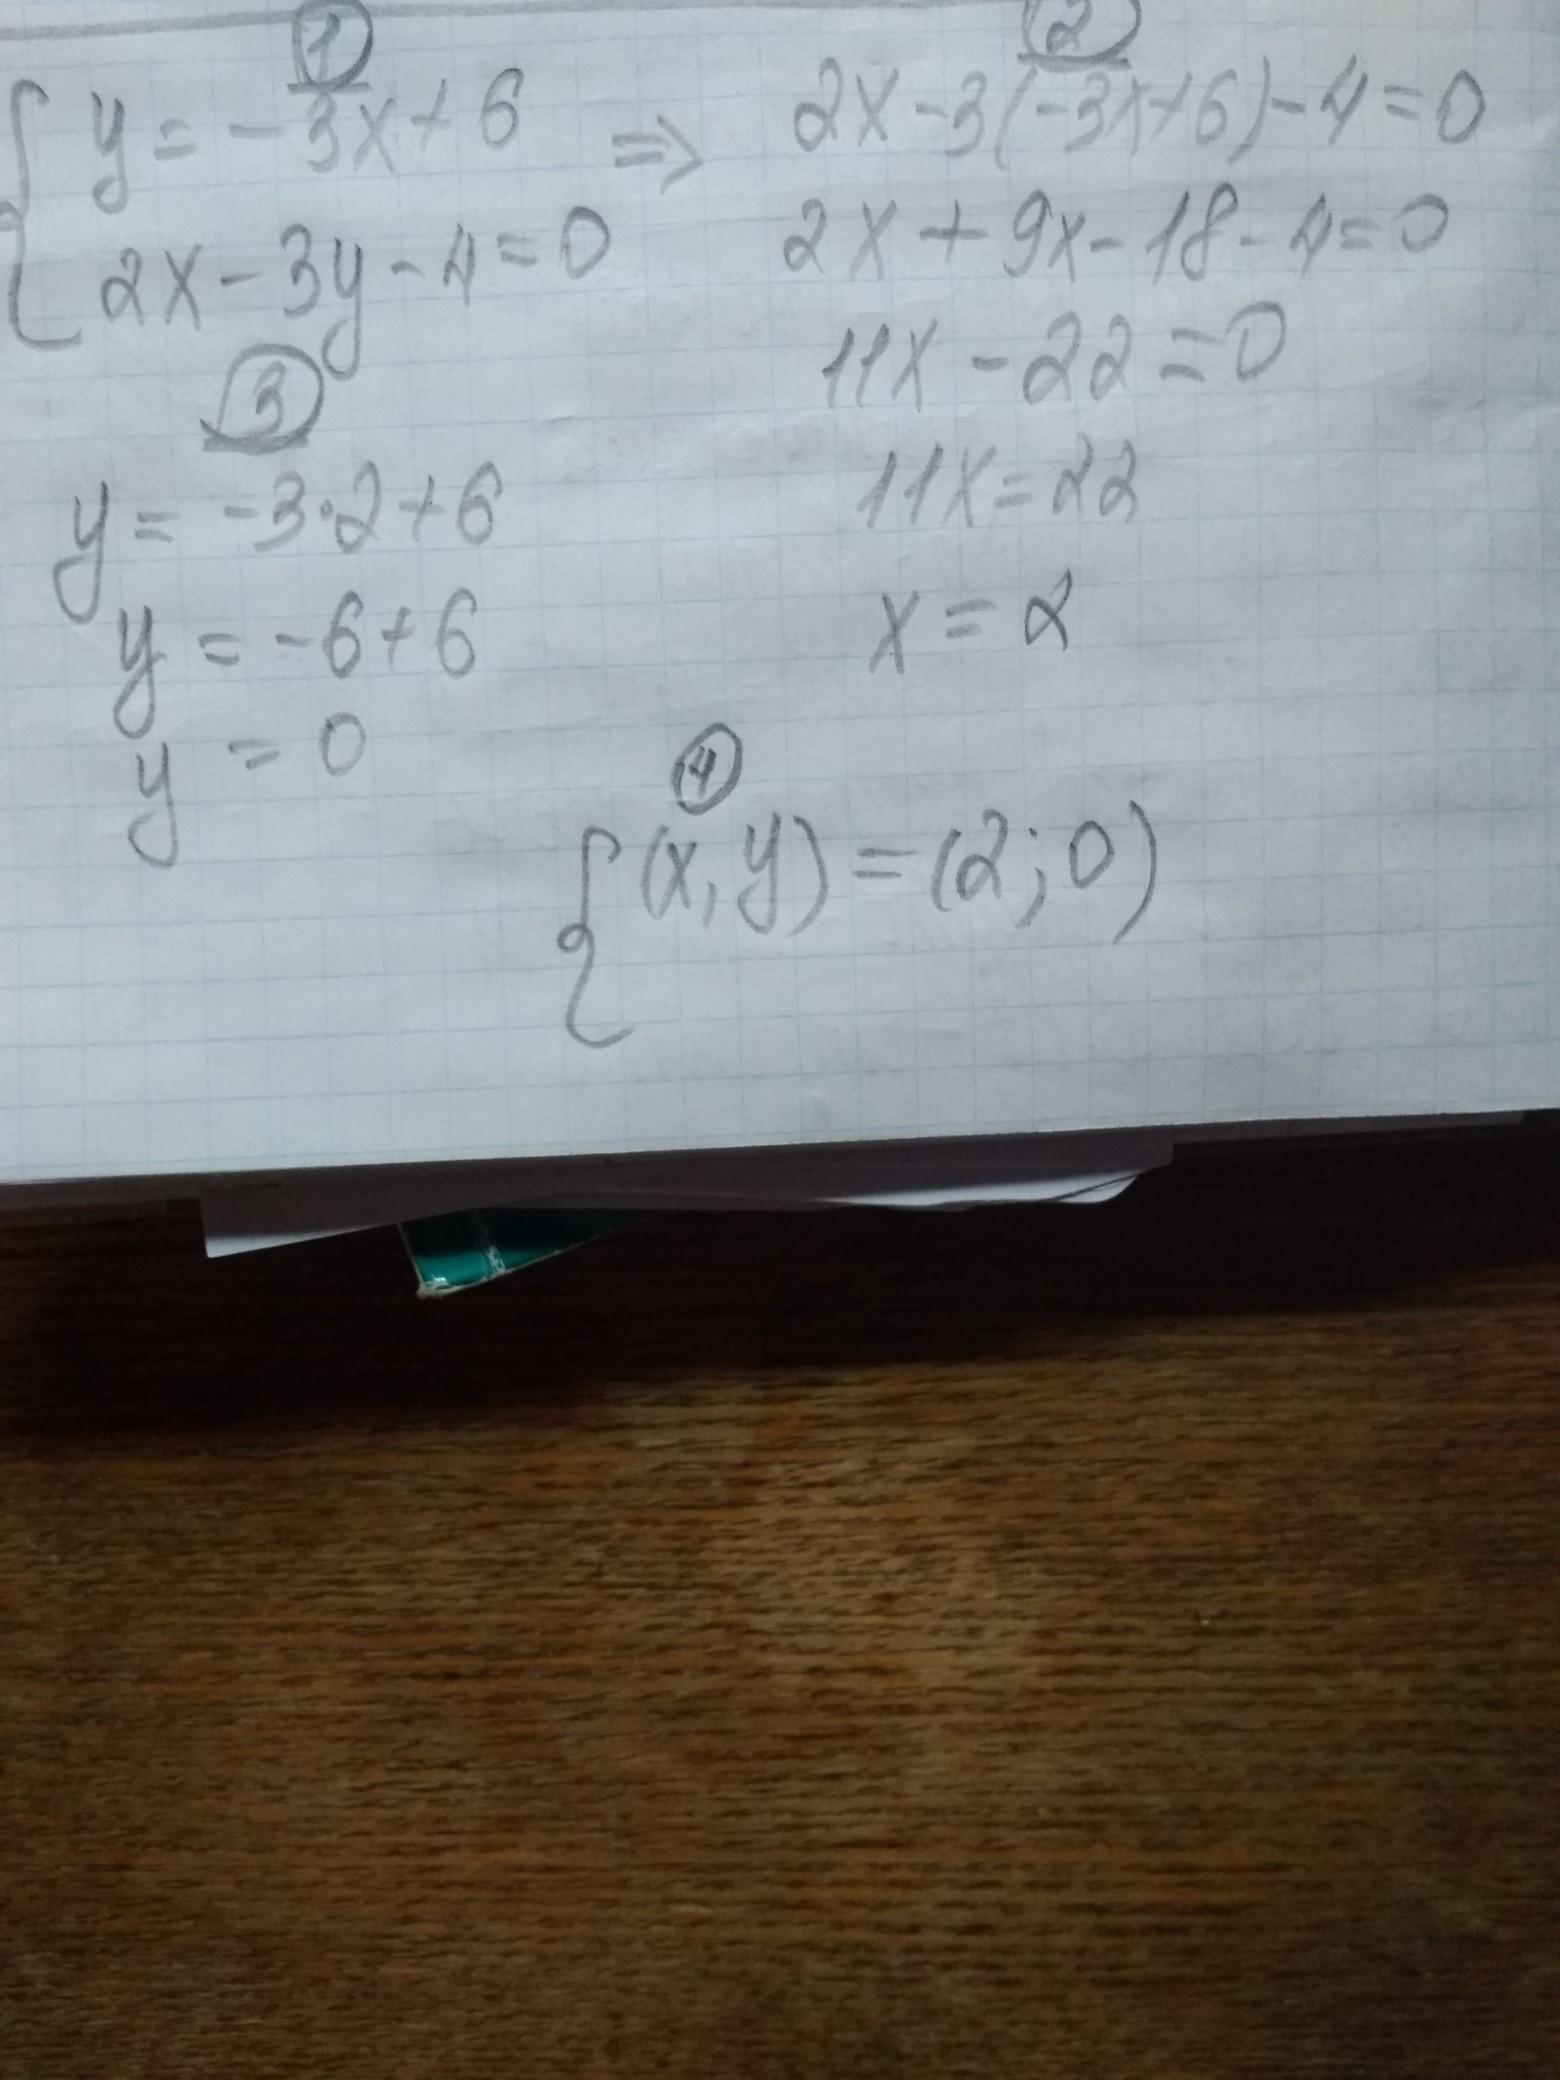 ①
y = -3x + 6 ⇒
2x - 3y - 4 = 0
②
2x - 3(-3x + 6) - 4 = 0
2x + 9x - 18 - 4 = 0
11x - 22 = 0
11x = 22
x = 2
③
y = -3·2 + 6
y = -6 + 6
y = 0
④
{(x, y) = (2; 0)